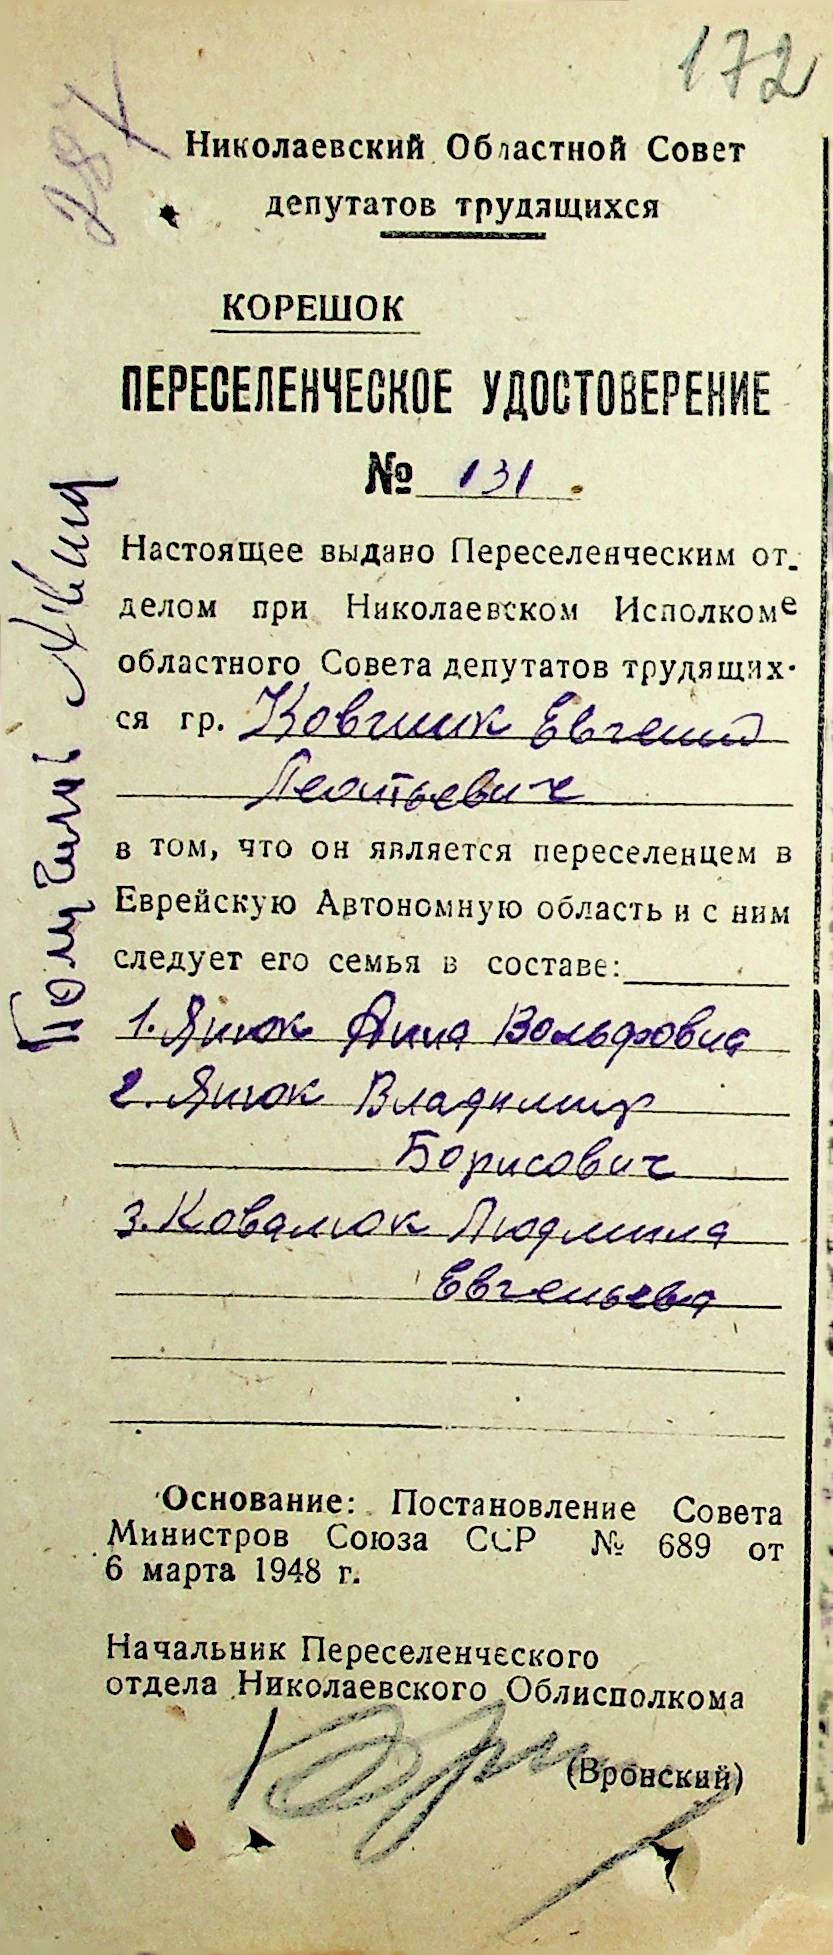 172
287
Николаевский Областной Совет
депутатов трудящихся
КОРЕШОК
ПЕРЕСЕЛЕНЧЕСКОЕ УДОСТОВЕРЕНИЕ
№ 131
Настоящее выдано Переселенческим от-
делом при Николаевском Исполкоме
областного Совета депутатов трудящих-
ся гр. Евгений
Леонтьевич
в том, что он является переселенцем в
Еврейскую Автономную область и с ним
следует его семья в составе:
1. Янюк Анна Вольфовна
2. Янюк Владимир
Борисович
3. Ковалюк Людмила
Евгеньева
Основание: Постановление Совета
Министров Союза ССР № 689 от
6 марта 1948 г.
Начальник Переселенческого
отдела Николаевского Облисполкома
(Вронский)
Получил